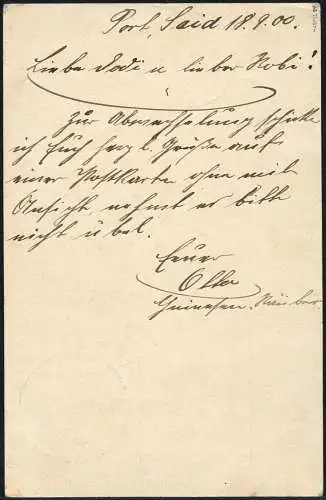 Port, Said 18.9.00.
Liebe Dodi u lieber Nobi!
Zur Abwechselung schicke
ich Euch herzl. Grüße auf
einer Postkarte ohne mit
Ansicht, nehmt es bitte
nicht übel.
Euer
Otto